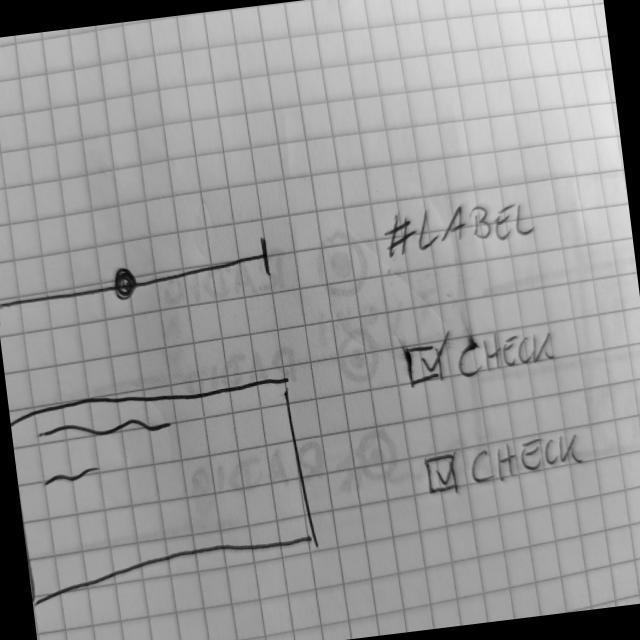 #LABEJ
☑ CHECK
☑ CHECK